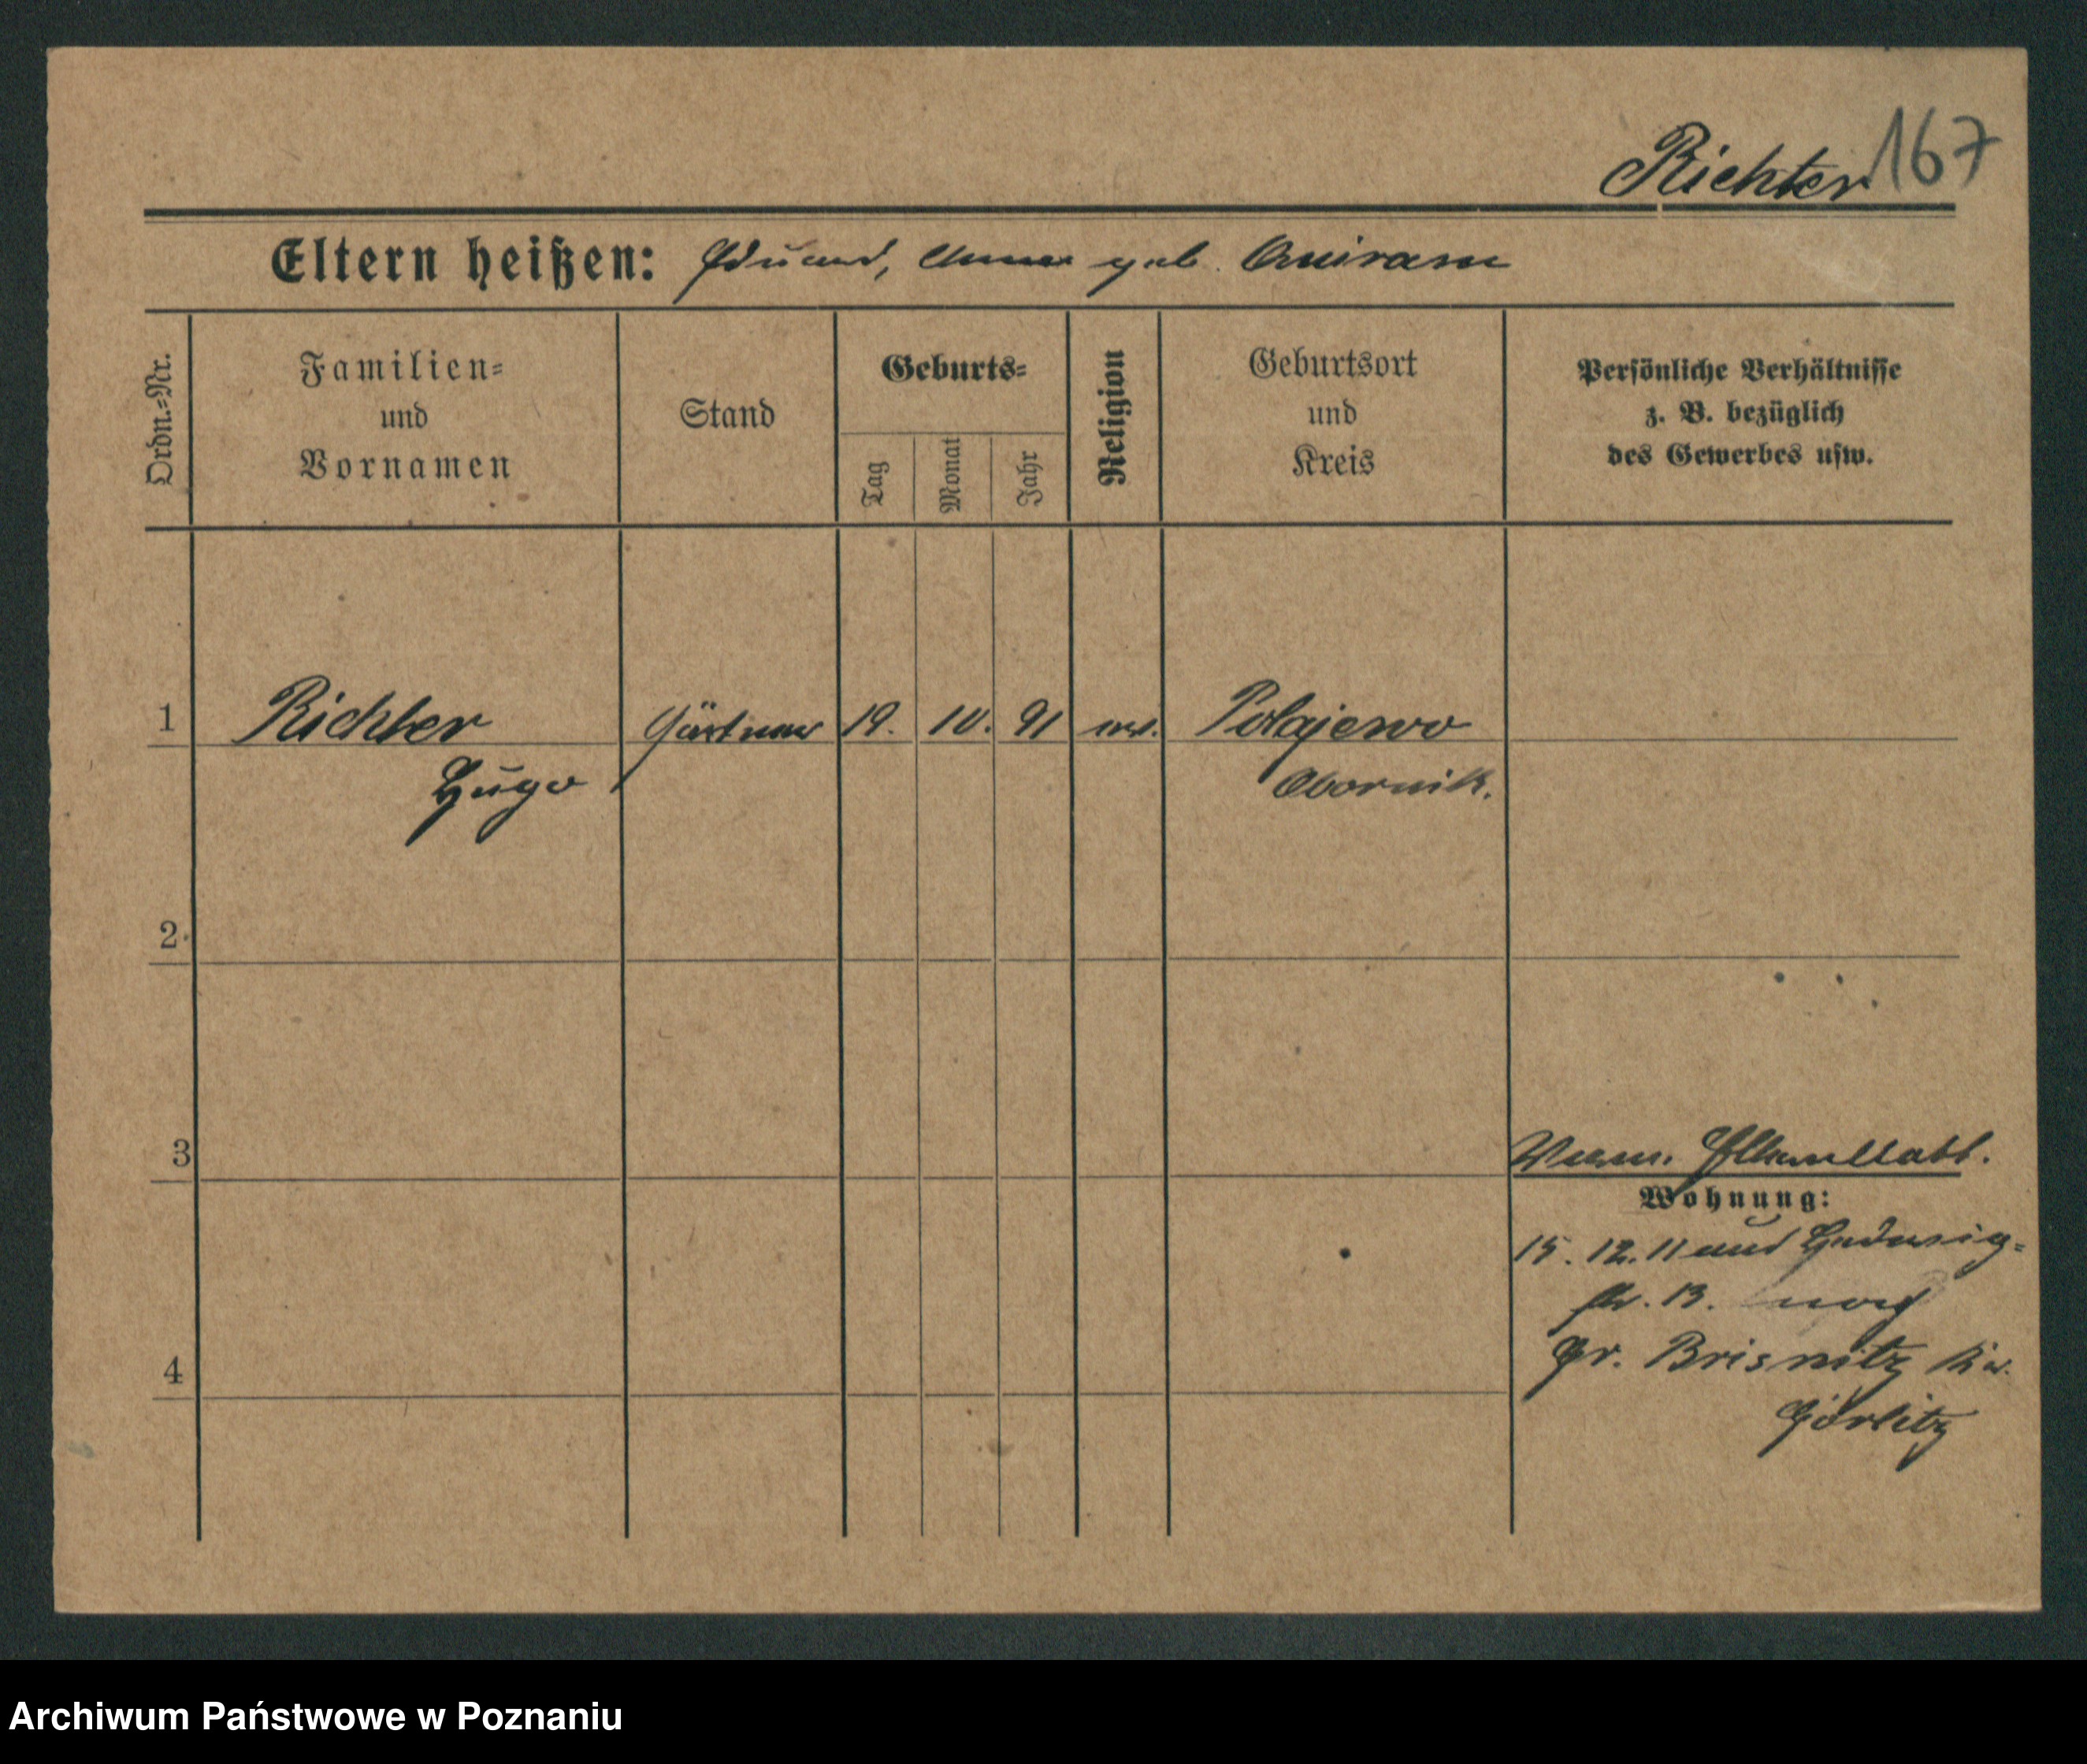 Richter 167
Eltern heißen: Eduard, Anna geb. Quiram
Ordn.-Nr.
Familien-
und
Vornamen
Stand
Geburts-
Tag
Monat
Jahr
Religion
Geburtsort
und
Kreis
Persönliche Verhältnisse
z. B. bezüglich
des Gewerbes usw.
1 Richter Gärtner 19. 10. 91 Polajewo
Hugo Obornik.
2
3
Wohnung:
15. 12. 11 Hedwig-
str. 13. nach
4
Gr. Brisnitz
Görlitz
Archiwum Państwowe w Poznaniu